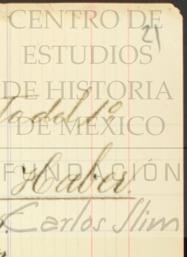 CENTRO DE
21
ESTUDIOS
DE HISTORIA
DE MÉXICO
FUNDACIÓN
Haber.
Carlos Slim